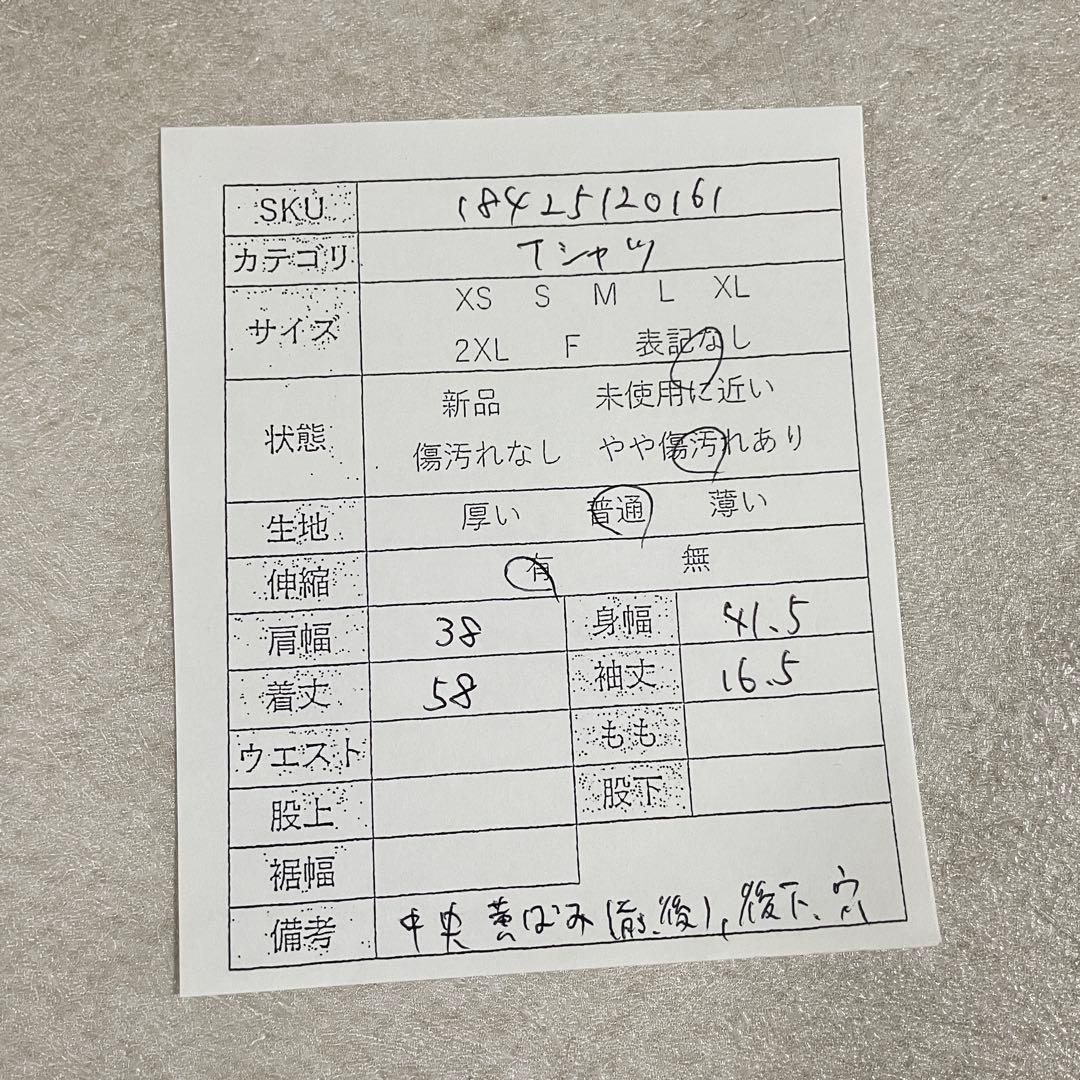 SKU 18425120161
カテゴリ Tシャツ
サイズ XS S M L XL
2XL F 表記なし
状態 新品 未使用に近い
傷汚れなし やや傷汚れあり
生地 厚い 普通 薄い
伸縮 有 無
肩幅 38 身幅 41.5
着丈 58 袖丈 16.5
ウエスト もも
股上 股下
裾幅
備考 中央黄ばみ(前、後)、後下、穴